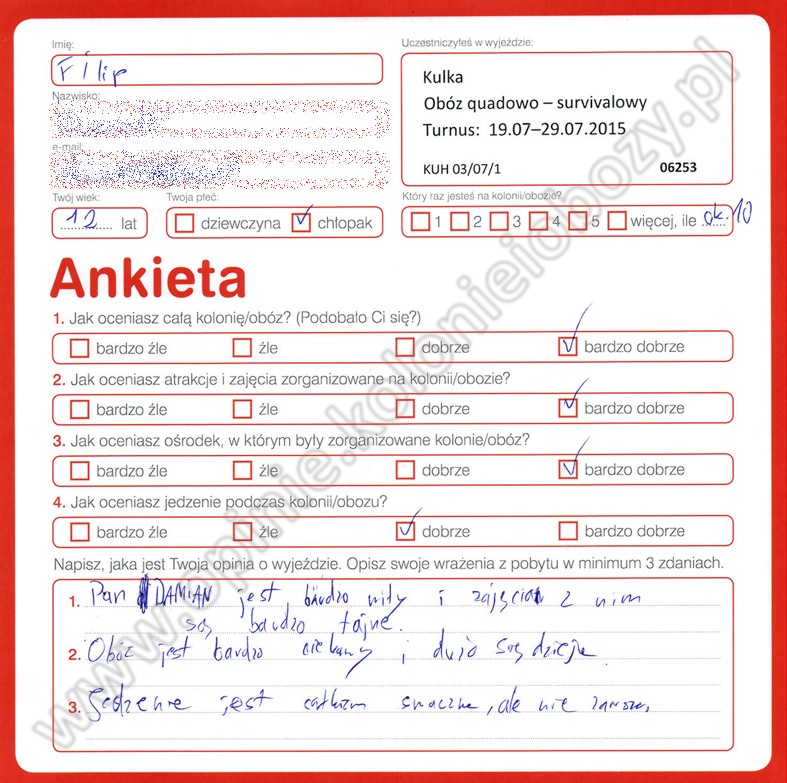 Imię:
Filip
Nazwisko:
e-mail:
Twój wiek:
12 lat
Twoja płeć:
dziewczyna chłopak
Uczestniczyłeś w wyjeździe:
Kulka
Obóz quadowo – survivalowy
Turnus: 19.07–29.07.2015
KUH 03/07/1 06253
Który raz jesteś na kolonii/obozie?
1 2 3 4 5 więcej, ile ok. 10
Ankieta
1. Jak oceniasz całą kolonię/obóz? (Podobało Ci się?)
bardzo źle źle dobrze bardzo dobrze
2. Jak oceniasz atrakcje i zajęcia zorganizowane na kolonii/obozie?
bardzo źle źle dobrze bardzo dobrze
3. Jak oceniasz ośrodek, w którym były zorganizowane kolonie/obóz?
bardzo źle źle dobrze bardzo dobrze
4. Jak oceniasz jedzenie podczas kolonii/obozu?
bardzo źle źle dobrze bardzo dobrze
Napisz, jaka jest Twoja opinia o wyjeździe. Opisz swoje wrażenia z pobytu w minimum 3 zdaniach.
1. Pan DAMIAN jest bardzo miły i zajęcia z nim
są bardzo fajne.
2. Obóz jest bardzo ciekawy i dużo się dzieje
3. Jedzenie jest całkiem smaczne, ale nie zawsze.
www.opinie.kolonieiobozy.pl